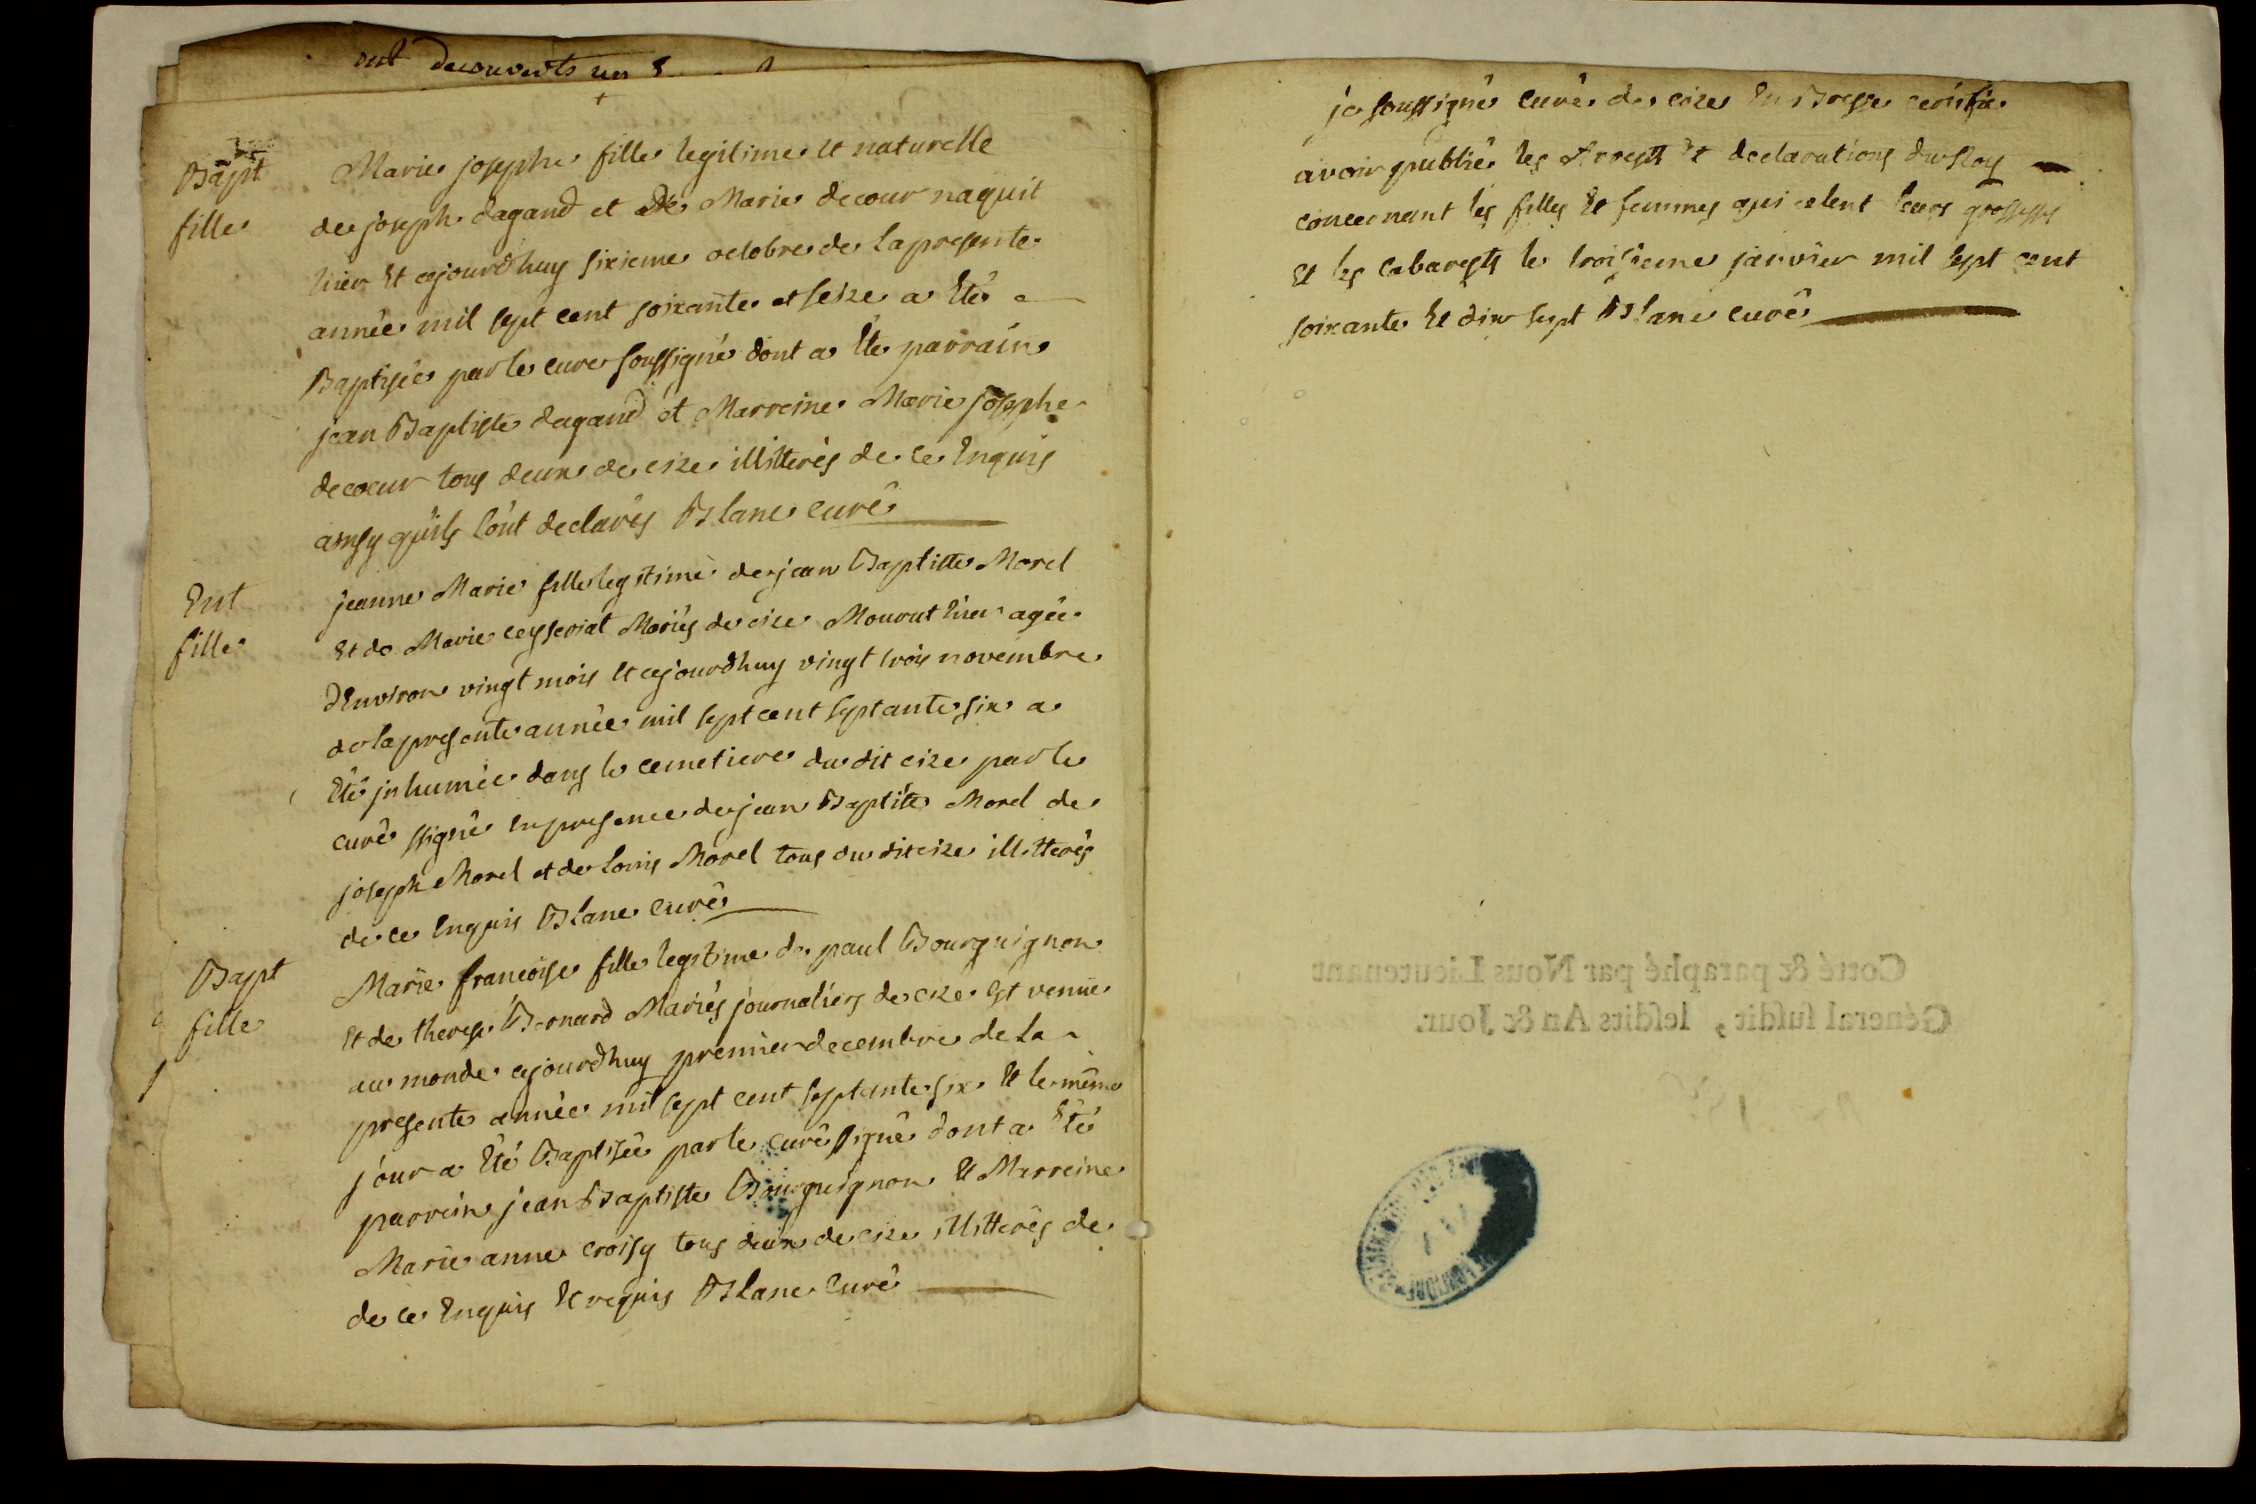 ont decouverts
Bapt
fille
Marie josephe fille legitime et naturelle
de joseph dagand et de Marie decour naquit
hier Et cejourdhuy sixieme octobre de la presente
année mil sept cent soixante et seize a Eté
Baptisée par le curé soussigné dont a Ete parrain
jean Baptiste dagand et Marreine Marie josephe
decoeur tous deux de cize illitterés de ce Enquis
ainsy quils lont declarés Blanc curé
Ent
fille
jeanne Marie fille legitime de jean Baptiste Morel
Et de Marie ceyseriat Mariés de cize Mourut hier agée
dEnviron vingt mois Et cejourdhuy vingt trois novembre
de la presente année mil sept cent septante six a
Eté jnhumée dans le cemetiere du dit cize par le
curé ssigné En presence de jean Baptiste Morel de
joseph Morel et de louis Morel tous du dit cize illitterés
de ce Enquis Blanc curé
Bapt
fille
Marie francoise fille legitime de paul Bourguignon
Et de therese Bernard Mariés journaliers de cize Est venüe
au monde cejourdhuy premier decembre de la
presente année mil sept cent septante six Et le même
jour a Eté Baptisée par le curé ssigné dont a Eté
parrein jean Baptiste Bourguignon Et Marreine
Marie anne croisy tous deux de cize illitterés de
de ce Enquis Et requis Blanc Curé
je soussigné curé de cize En Bresse certifie
avoir publié les Arrests Et declarations du Roy
concernant les filles Et femmes qui celent leurs grossesses
Et les Cabarests le troisieme janvier mil sept cent
soixante Et dix sept Blanc curé
Cotté & paraphé par Nous Lieutenant
Général susdit, lesdits An & Jour.